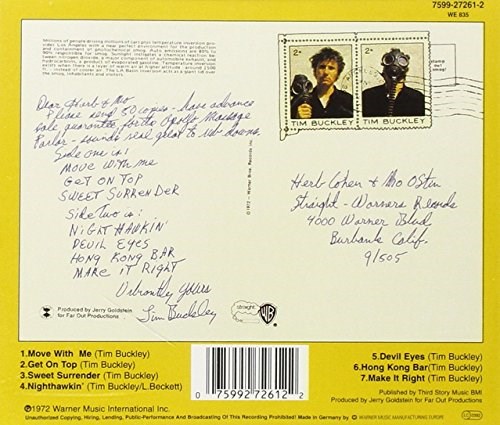 7599-27261-2
WE 835
Millions of people driving millions of cars plus temperature inversion pro-
vides Los Angeles with a near perfect environment for the production
and containment of photochemical smog. Auto emissions are 80% to
90% responsible for smog. Sunlight instigates a chemical reaction be-
tween nitrogen dioxide, a major component of automobile exhaust, and
hydrocarbons, a product of evaporated gasoline. Temperature inversion
exists when there is a layer of warm air
instead of cooler air. The LA Basin inversion acts as a giant lid over
the smog, inhabitants and visitors.
2¢
2¢
TIM BUCKLEY
TIM BUCKLEY
Dear Herb & Mo
Please send 50 copies - have advance
sale guarantee for the Apollo Massage
Parlor - sounds real great to us down.
Side one is:
MOVE WITH me
GeT ON TOP
SWEET SURRENDER
Side Two is:
NIGHT HAWKIN'
DEVIL EYES
HONG KONG BAR
MAKE IT RIGHT
Vibrantly yours
Tim Buckley
©1972 - Warner Bros. Records Inc.
Herb Cohen & Mo Ostin
Straight - Warners Records
4000 Warner Blvd
Burbank Calif.
91505
Produced by Jerry Goldstein
for Far Out Productions
straight
WB
1.Move With Me (Tim Buckley)
2.Get On Top (Tim Buckley)
3.Sweet Surrender (Tim Buckley)
4.Nighthawkin' (Tim Buckley/L.Beckett)
0 75992 72612 2
5.Devil Eyes (Tim Buckley)
6.Hong Kong Bar(Tim Buckley)
7.Make It Right (Tim Buckley)
Published by Third Story Music BMI
Produced by Jerry Goldstein for Far Out Productions
℗1972 Warner Music International Inc.
Unauthorized Copying, Hiring, Lending, Public-Performance And Broadcasting Of This Recording Prohibited! Made in Germany by WARNER MUSIC MANUFACTURING EUROPE